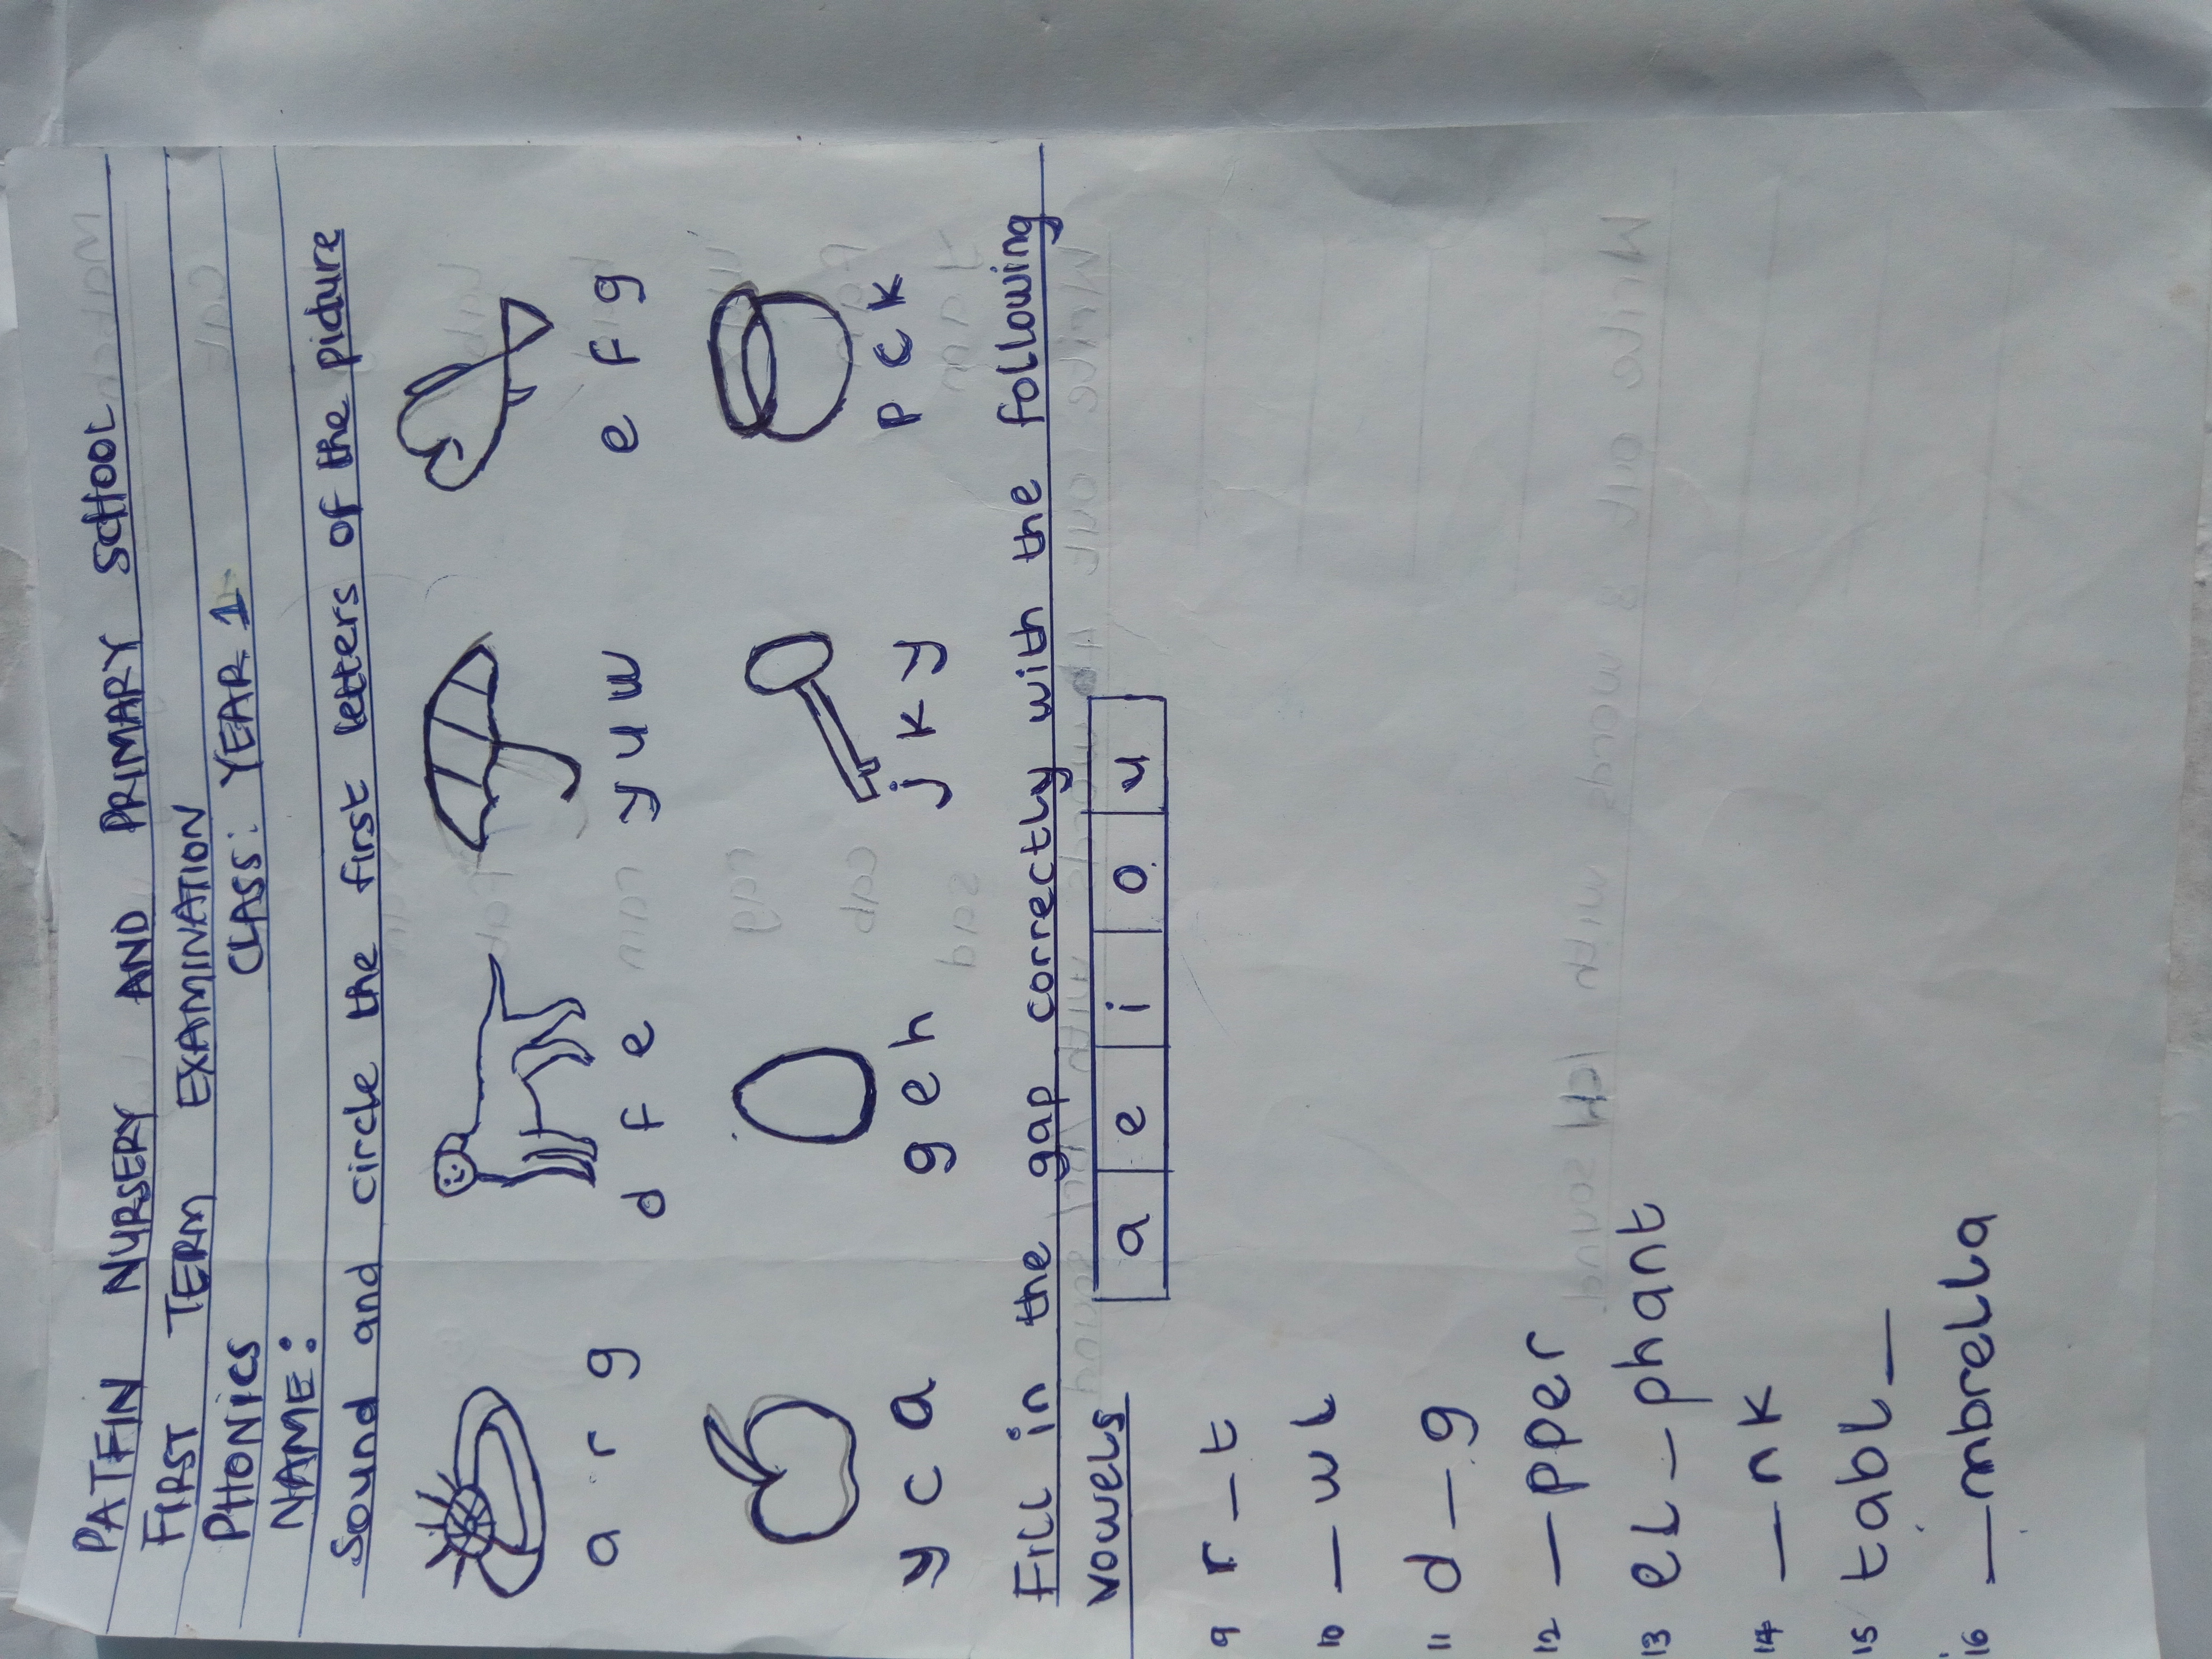 PATFIN NURSERY AND PRIMARY SCHOOL
FIRST TERM EXAMINATION
PHONICS CLASS: YEAR 1
NAME:
Sound and circle the first letters of the picture
a r g d f e y u w e f g
y c a g e h j k y p c k
Fill in the gap correctly with the following
vowels
a e i o u
9 r _ t
10 _ wl
11 d _ g
12 _ pper
13 el _ phant
14 _ nk
15 tabl _
16 _ mbrella